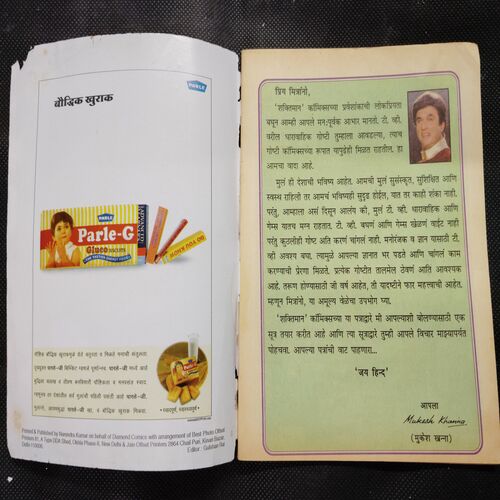 PARLE
बौद्धिक खुराक
PARLE
Parle-G
Gluco BISCUITS
पौष्टिक बौद्धिक खुराकमुळे येते चतुरता व मिळते मनाची संतुलता.
• स्वादपूर्ण, स्वास्थ्यपूर्ण •
Printed & Published by Narendra Kumar on behalf of Diamond Comics with arrangement of Best Photo Offset
Printers 81, A Type DDA Shed, Okhla Phase II, New Delhi & Jain Offset Printers 2864 Gali Puri, Kinari Bazar,
Delhi-110006.
Editor : Gulshan Rai
प्रिय मित्रांनो,
'शक्तिमान' कॉमिक्सच्या प्रवेशांकाची लोकप्रियता
बघून आम्ही आपले मनःपूर्वक आभार मानतो. टी. व्ही.
वरील धारावाहिक गोष्टी तुम्हाला आवडल्या, त्याच
गोष्टी कॉमिक्सच्या रूपात यापुढेही मिळत राहतील. हा
आमचा वादा आहे.
मुलं ही देशाची भविष्य आहेत. आमची मुलं सुसंस्कृत, सुशिक्षित आणि
स्वस्थ राहिली तर आमचं भविष्यही सुदृढ होईल, यात तर काही शंका नाही.
परंतु, आम्हाला असं दिसून आलंय की, मुलं टी. व्ही. धारावाहिक आणि
गेम्स यातच मग्न राहतात. टी. व्ही. बघणं आणि गेम्स खेळणं वाईट नाही
परंतु कुठलीही गोष्ट अति करणं चांगलं नाही. मनोरंजक व ज्ञान यासाठी टी.
व्ही अवश्य बघा. त्यामुळे आपल्या ज्ञानात भर पडते आणि चांगलं काम
करण्याची प्रेरणा मिळते. प्रत्येक गोष्टीत तालमेल ठेवणं अति आवश्यक
आहे. तरूण होण्यासाठी जी वर्षं आहेत, ती यादष्टीने फार महत्त्वाची आहेत.
म्हणून मित्रांनो, या अमूल्य वेळेचा उपभोग घ्या.
'शक्तिमान' कॉमिक्सच्या या पत्राद्वारे मी आपल्याशी बोलण्यासाठी एक
सूत्र तयार करीत आहे आणि त्या सूत्राद्वारे तुम्ही आपले विचार माझ्यापर्यंत
पोहचवा. आपल्या पत्रांची वाट पाहणारा...
'जय हिन्द'
आपला
Mukesh Khanna
(मुकेश खन्ना)